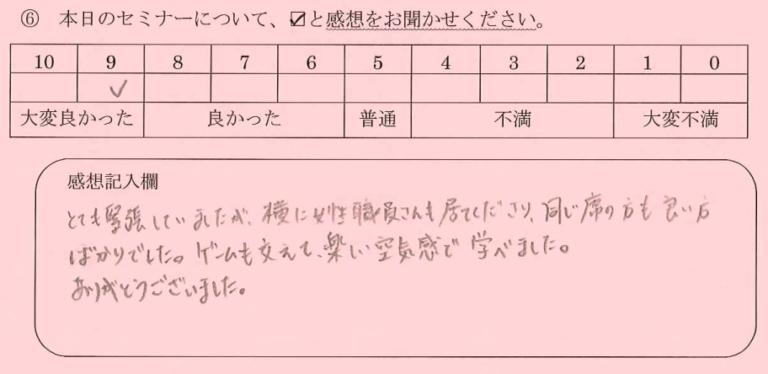 ⑥ 本日のセミナーについて、☑と感想をお聞かせください。
10 9 8 7 6 5 4 3 2 1 0
✓
大変良かった 良かった 普通 不満 大変不満
感想記入欄
とても緊張していましたが、横に女性職員さんも居てくださり、同じ席の方も良い方
ばかりでした。ゲームも交えて、楽しい空気感で学べました。
ありがとうございました。